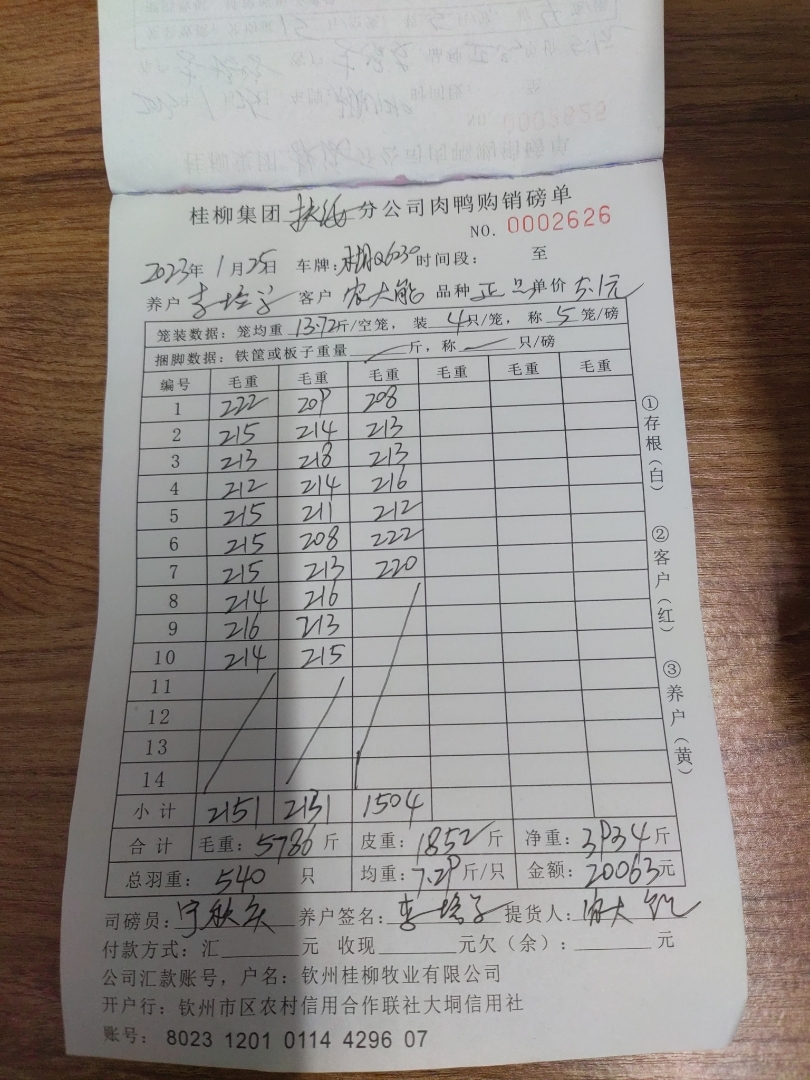 桂柳集团 扶绥 分公司肉鸭购销磅单
NO. 0002626
2023年 1月25日 车牌:桂N Q6230 时间段: 至
养户 李培学 客户 农大能 品种 正品 单价 5.1元
笼装数据: 笼均重 13.72斤/空笼, 装 4只/笼, 称 5 笼/磅
捆脚数据: 铁筐或板子重量 斤, 称 只/磅
编号 毛重 毛重 毛重 毛重 毛重 毛重
1 222 209 208
2 215 214 213
3 213 218 213
4 212 214 216
5 215 211 212
6 215 208 222
7 215 213 220
8 214 216
9 216 213
10 214 215
11
12
13
14
小计 2151 2131 1504
合计 毛重: 5786 斤 皮重: 1852 斤 净重: 3934 斤
总羽重: 540 只 均重: 7.29 斤/只 金额: 20063元
司磅员: 养户签名: 李培学 提货人: 农大能
付款方式: 汇 元 收现 元欠(余): 元
公司汇款账号, 户名: 钦州桂柳牧业有限公司
开户行: 钦州市区农村信用合作联社大垌信用社
账号: 8023 1201 0114 4296 07
①存根(白)
②客户(红)
③养户(黄)